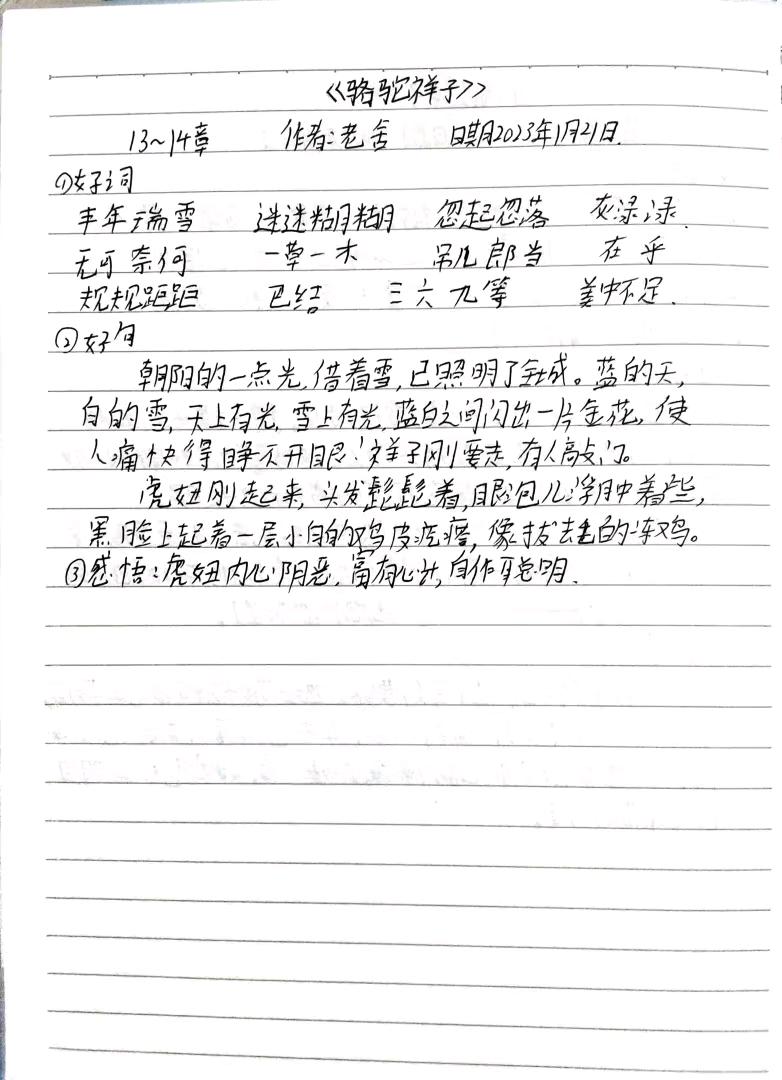 《骆驼祥子》
13~14章 作者:老舍 日期2023年1月21日.
①好词
丰年瑞雪 迷迷糊糊 忽起忽落 灰渌渌.
无可奈何 一草一木 吊儿郎当 在乎
规规距距 巴结 三六九等 美中不足.
②好句
朝阳的一点光,借着雪,已照明了全城。蓝的天,
白的雪,天上有光,雪上有光,蓝白之间闪出一片金花,使
人痛快得睁不开眼!祥子刚要走,有人敲门。
虎妞刚起来,头发髭髭着,眼泡儿浮肿着些,
黑脸上起着一层小白的鸡皮疙瘩,像拔去毛的冻鸡。
③感悟:虎妞内心阴恶,富有心计,自作聪明.